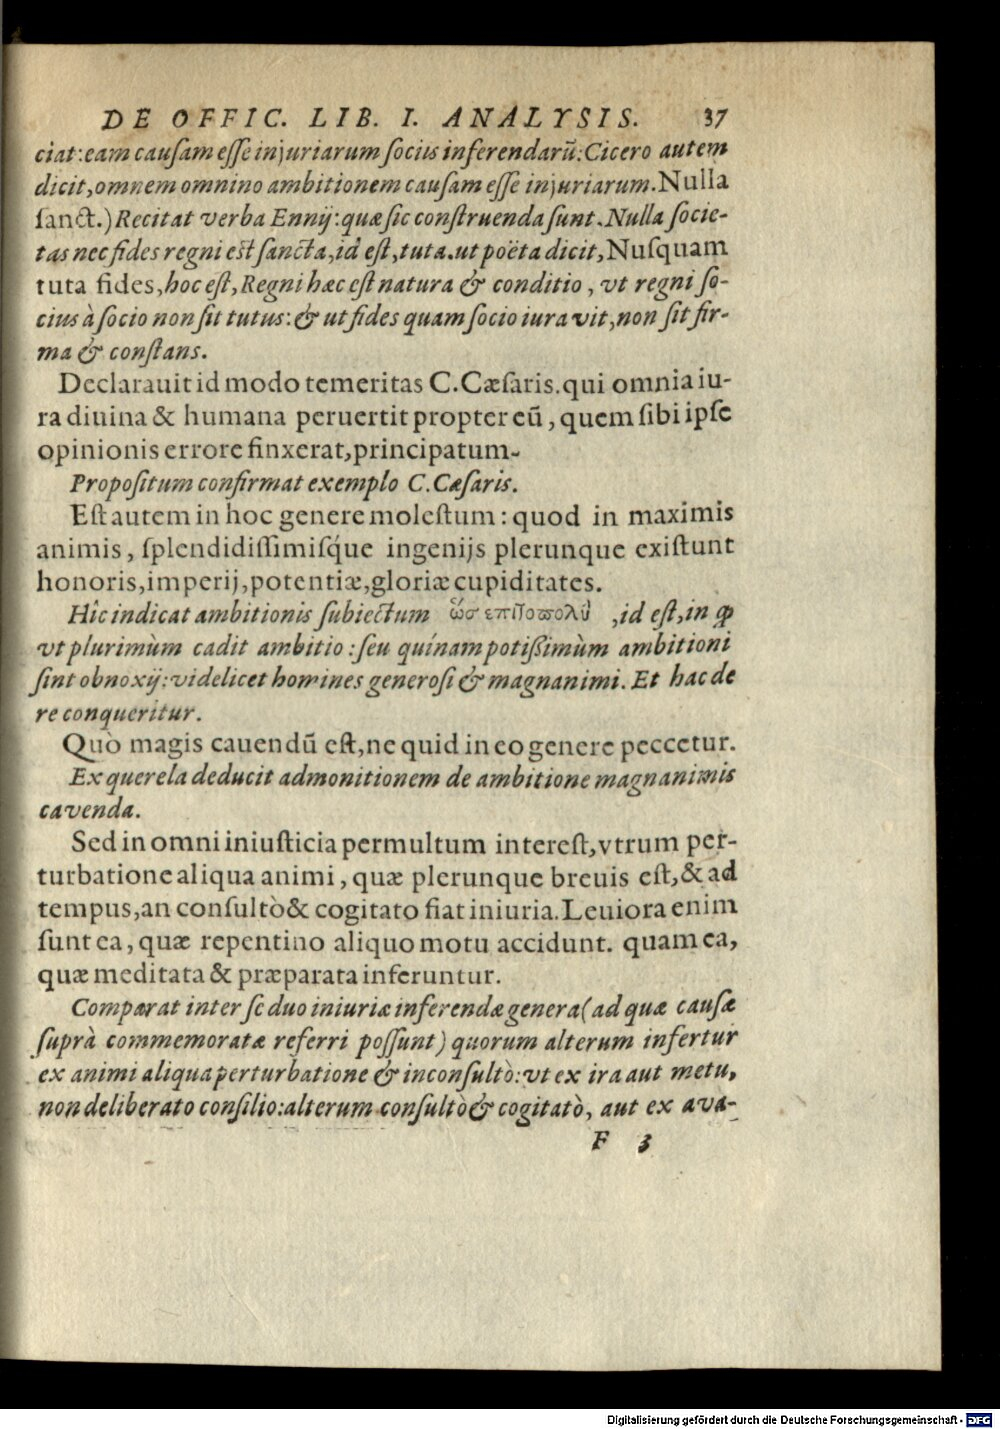 DE OFFIC. LIB. I. ANALYSIS. 37
ciat: eam causam esse injuriarum sociis inferendarũ: Cicero autem
dicit, omnem omnino ambitionem causam esse injuriarum. Nulla
sanct.) Recitat verba Ennij: quæ sic construenda sunt. Nulla socie-
tas nec fides regni est sancta, id est, tuta. ut poëta dicit, Nusquam
tuta fides, hoc est, Regni hæc est natura & conditio, vt regni so-
cius à socio non sit tutus: & ut fides quam socio iuravit, non sit fir-
ma & constans.
Declarauit id modo temeritas C. Cæsaris. qui omnia iu-
ra diuina & humana peruertit propter eũ, quem sibi ipse
opinionis errore finxerat, principatum.
Propositum confirmat exemplo C. Cæsaris.
Est autem in hoc genere molestum: quod in maximis
animis, splendidissimisq́ue ingenijs plerunque existunt
honoris, imperij, potentiæ, gloriæ cupiditates.
Hîc indicat ambitionis subiectum ὡσ επιτοπολὺ, id est, in ꝙ
vt plurimùm cadit ambitio: seu quínam potißimùm ambitioni
sint obnoxij: videlicet homines generosi & magnanimi. Et hac de
re conqueritur.
Quò magis cauendũ est, ne quid in eo genere peccetur.
Ex querela deducit admonitionem de ambitione magnanimis
cavenda.
Sed in omni iniusticia permultum interest, vtrum per-
turbatione aliqua animi, quæ plerunque breuis est, & ad
tempus, an consultò & cogitato fiat iniuria. Leuiora enim
sunt ea, quæ repentino aliquo motu accidunt. quam ea,
quæ meditata & præparata inferuntur.
Comparat inter se duo iniuriæ inferendæ genera (ad quæ causæ
suprà commemoratæ referri possunt) quorum alterum infertur
ex animi aliqua perturbatione & inconsultò: vt ex ira aut metu,
non deliberato consilio: alterum consultò & cogitatò, aut ex ava-
F 3
Digitalisierung gefördert durch die Deutsche Forschungsgemeinschaft - DFG